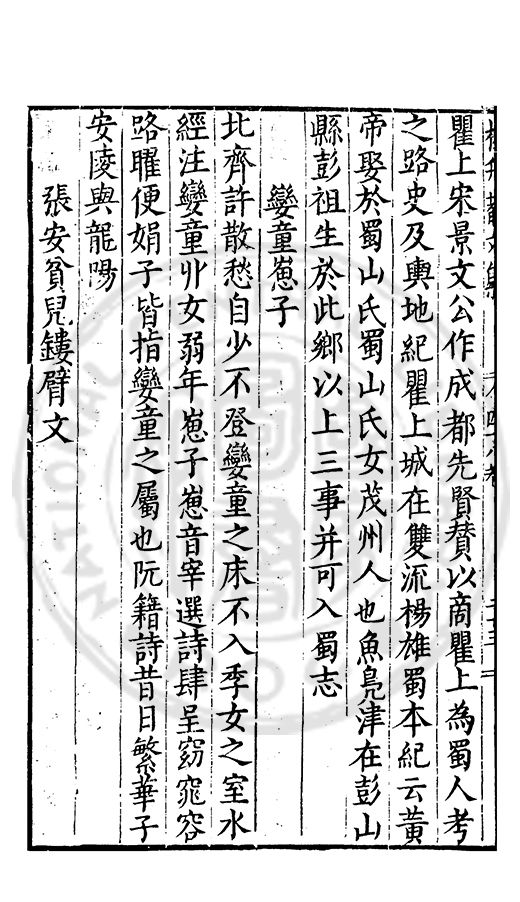 瞿上宋景文公作成都先賢贊以商瞿上為蜀人考
之路史及輿地紀瞿上城在雙流楊雄蜀本紀云黃
帝娶於蜀山氏蜀山氏女茂州人也魚鳧津在彭山
縣彭祖生於此鄉以上三事并可入蜀志
孌童崽子
北齊許散愁自少不登孌童之床不入季女之室水
經注孌童丱女弱年崽子崽音宰選詩肆呈窈窕容
路曜便娟子皆指孌童之屬也阮籍詩昔日繁華子
安陵與龍陽
張安貧兒鏤臂文
NATIONAL